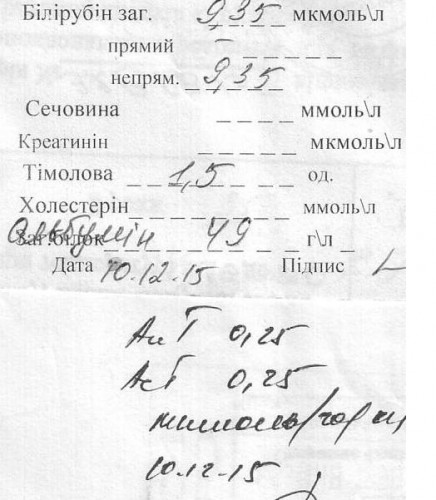 Білірубін заг. 9,35 мкмоль\л
прямий –
непрям. 9,35
Сечовина ммоль\л
Креатинін мкмоль\л
Тімолова 1,5 од.
Холестерін ммоль\л
Заг.білок альбумін 49 г\л
Дата 10.12.15 Підпис
АлТ 0,25
АсТ 0,25
10.12-15